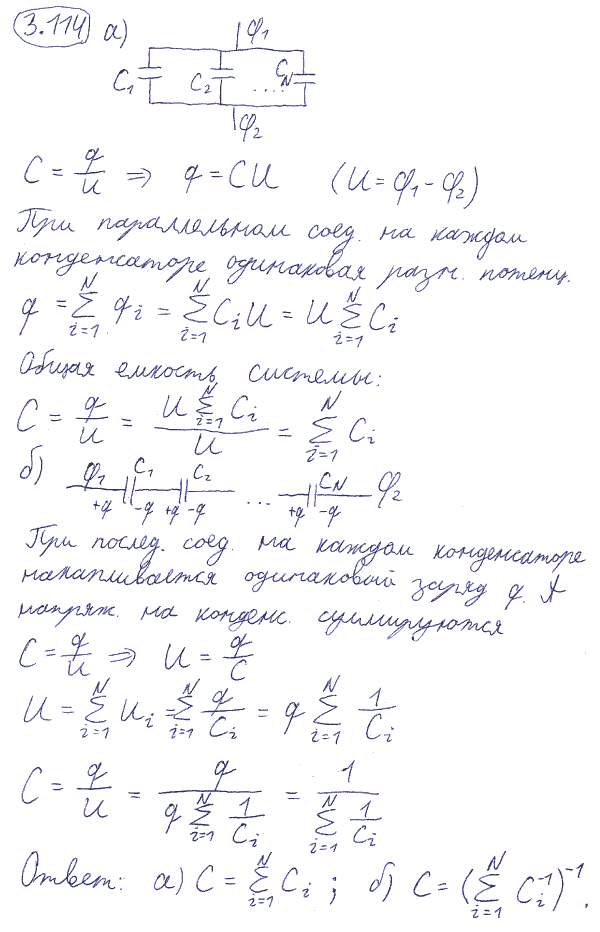 3.114 а)
φ₁
C₁ C₂ .... C_N
φ₂
C = q/U ⇒ q = CU (U = φ₁ - φ₂)
При параллельном соед. на каждом
конденсаторе одинаковая разн. потенц.
q = ∑_{i=1}^{N} q_i = ∑_{i=1}^{N} C_i U = U ∑_{i=1}^{N} C_i
Общая емкость системы:
C = q/U = (U ∑_{i=1}^{N} C_i)/U = ∑_{i=1}^{N} C_i
б) φ₁ C₁ C₂ ... C_N φ₂
+q -q +q -q +q -q
При послед. соед. на каждом конденсаторе
накапливается одинаковый заряд q. А
напряж. на конденс. суммируются
C = q/U ⇒ U = q/C
U = ∑_{i=1}^{N} U_i = ∑_{i=1}^{N} q/C_i = q ∑_{i=1}^{N} 1/C_i
C = q/U = q/(q ∑_{i=1}^{N} 1/C_i) = 1/(∑_{i=1}^{N} 1/C_i)
Ответ: а) C = ∑_{i=1}^{N} C_i ; б) C = (∑_{i=1}^{N} C_i^{-1})^{-1}.